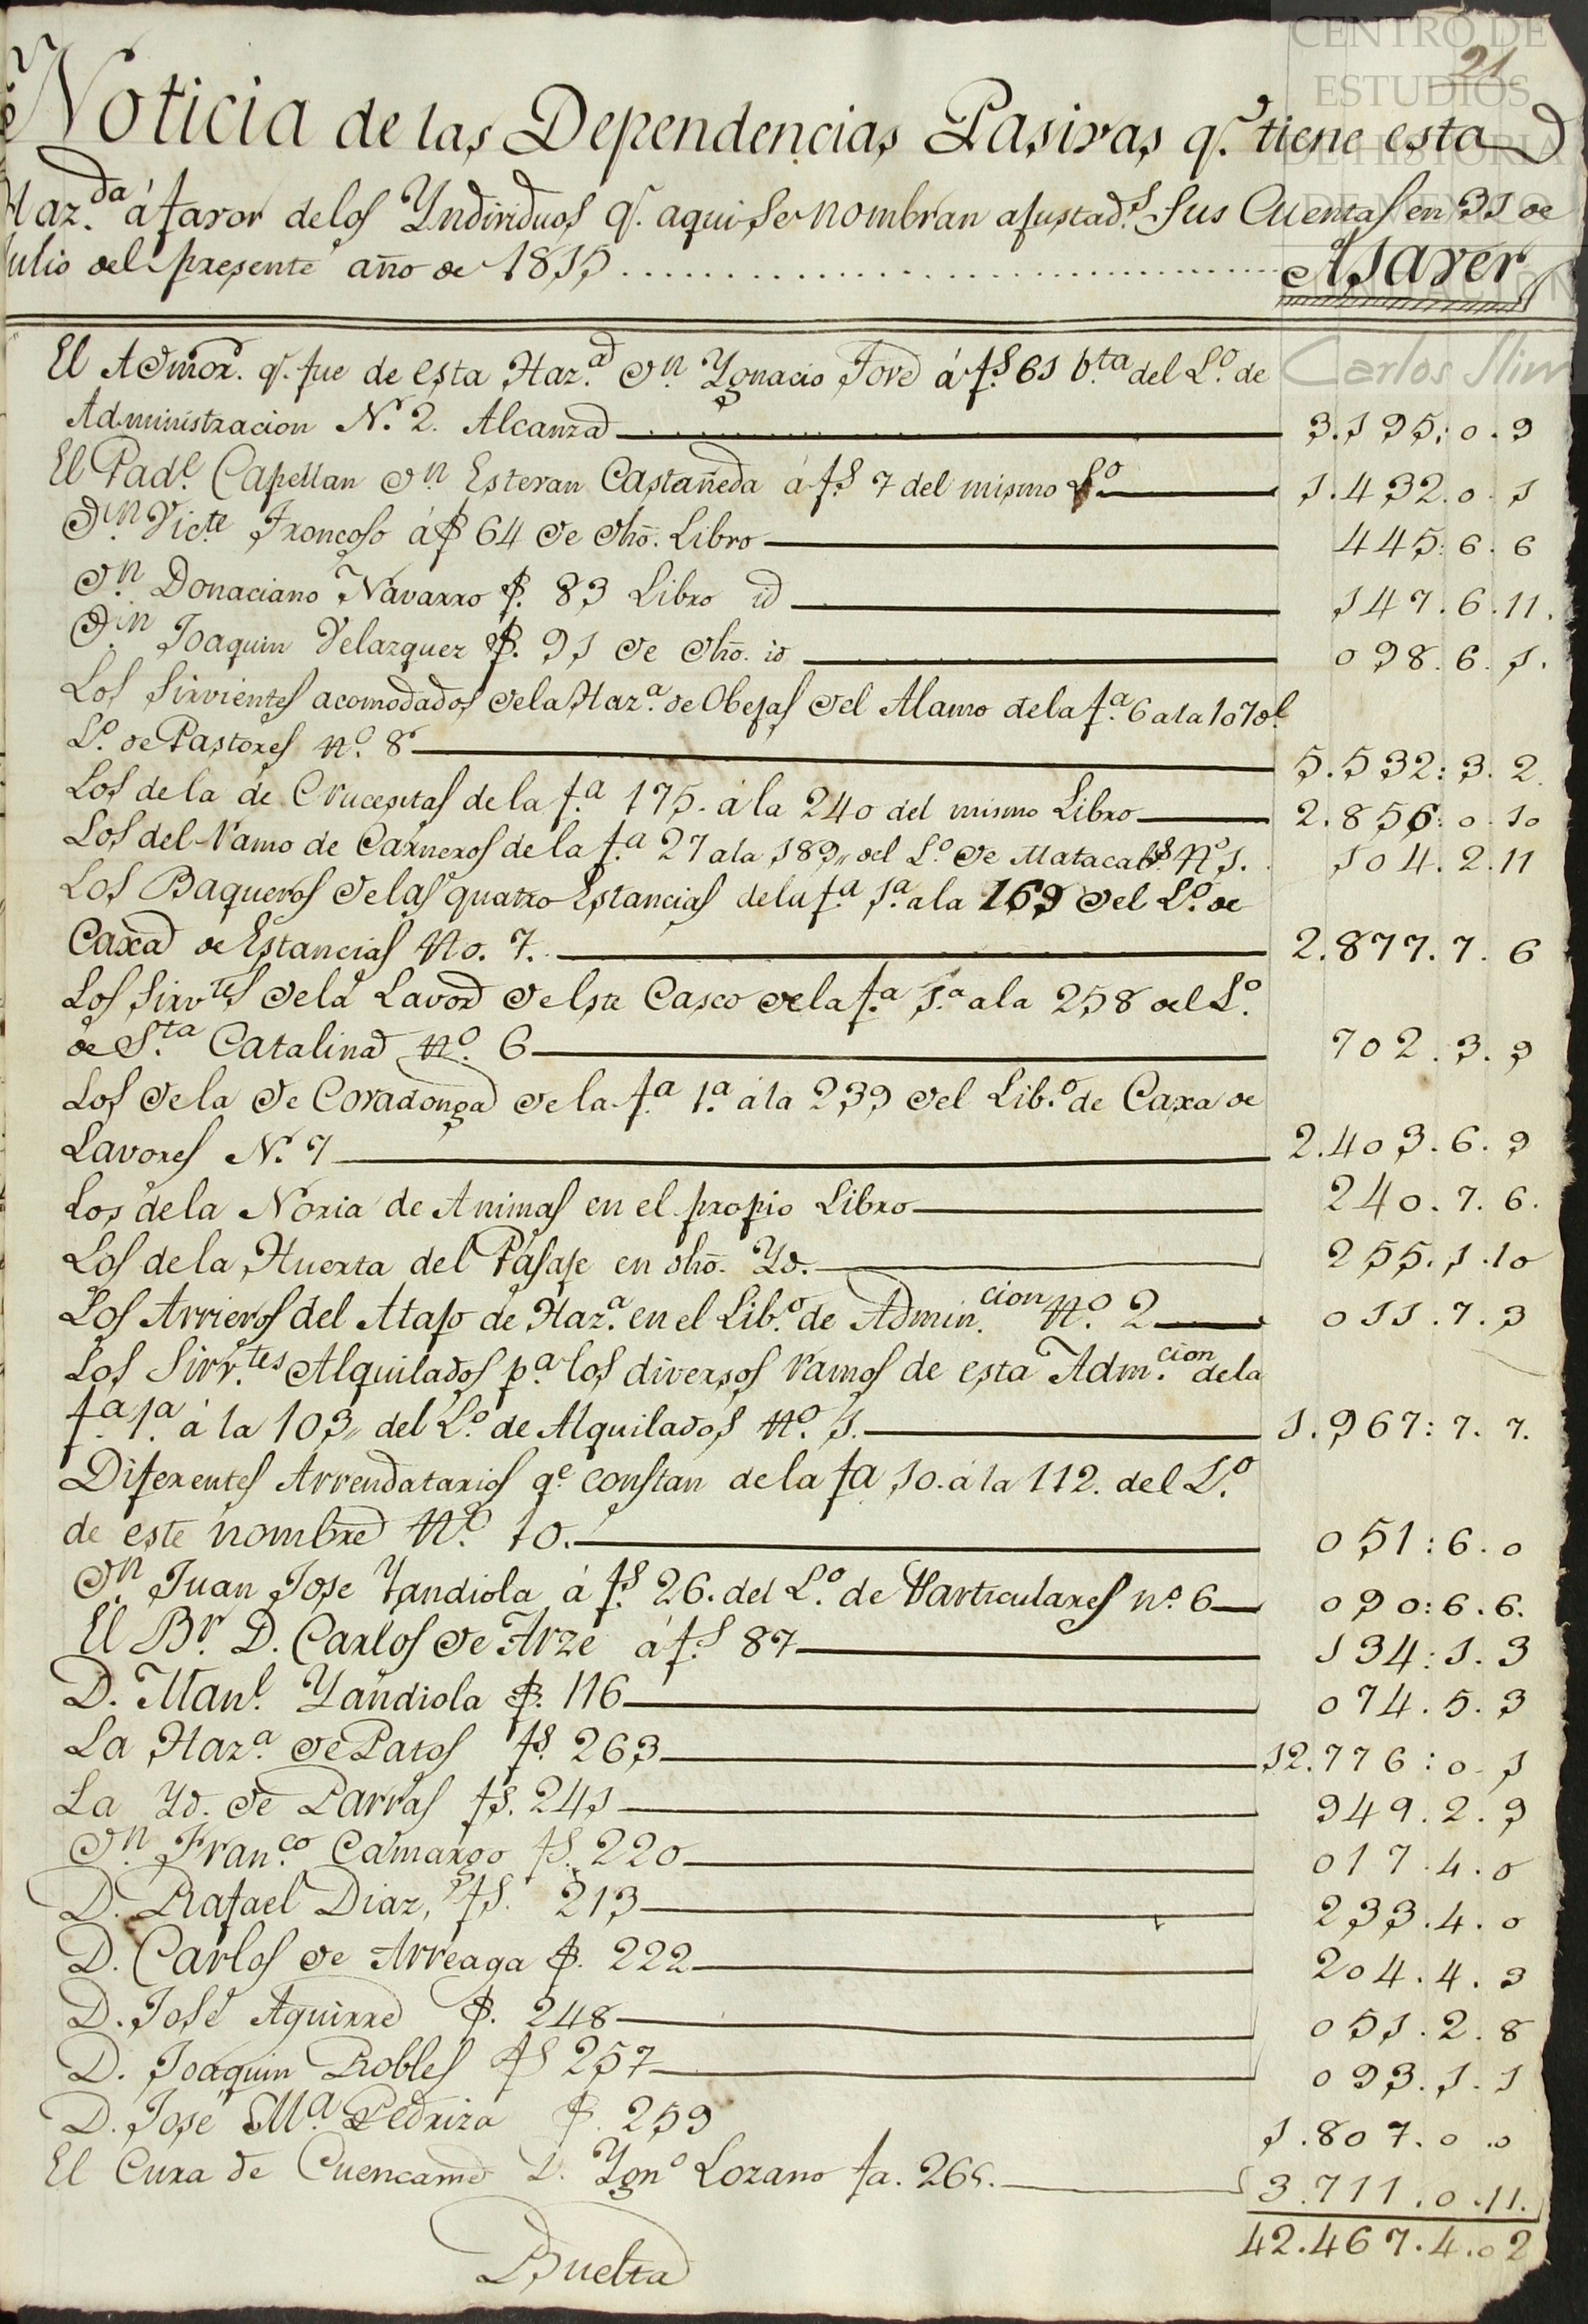 CENTRO DE
ESTUDIOS
DE HISTORIA
DE MEXICO
FUNDACIÓN
Carlos Slim
21
Noticia de las Dependencias Pasivas q.e tiene esta
Haz.da á favor delos Yndividuos q.e aqui se nombran ajustad.s sus Cuentas en 31 de
Julio del presente año de 1815 Asaver
El Admor. q.e fue de esta Haz.a Dn. Ygnacio Fore á fs 61 b.ta del L.o de
Administracion N.o 2. Alcanza 3.195:0.9
El Pad.e Capellan Dn. Estevan Castañeda á fs 7 del mismo L.o 1.432.0.1
Dn. Vic.te Troncoso á fs 64 de dho. Libro 445:6.6
Dn. Donaciano Navarro fs. 83 Libro id 147.6.11.
Dn. Joaquin Velazquez fs. 91 de dho. id 098.6.1.
Los Sirvientes acomodados dela Haz.a de Obejas del Alamo dela f.a 6 ala 107 del
L.o de Pastores N.o 8 5.532:3.2.
Los de la de Crucesitas de la f.a 175. á la 240 del mismo Libro 2.856:0.10
Los del Ramo de Carneros de la f.a 27 ala 189,, del L.o de Matacab.s N.o 1. 104.2.11
Los Baqueros delas quatro Estancias dela f.a 1.a ala 169 del L.o de
Caxa de Estancias No. 7. 2.877.7.6
Los Sirv.tes dela Lavor de este Casco dela f.a 1.a ala 258 del L.o
de S.ta Catalina N.o 6 702.3.9
Los dela de Covadonga dela f.a 1.a ála 239 del Lib.o de Caxa de
Lavores N.o 7 2.403.6.9
Los dela Noria de Animas en el propio Libro 240.7.6.
Los dela Huerta del Pasaje en dho. Yd. 255.1.10
Los Arrieros del Atajo de Haz.a en el Lib.o de Admin.cion N.o 2 011.7.3
Los Sirv.tes Alquilados p.a los diversos Ramos de esta Adm.cion dela
f.a 1.a á la 103,, del L.o de Alquilados N.o 1. 1.967:7.7.
Diferentes Arrendatarios q.e constan dela fa 10. á la 112. del L.o
de este nombre N.o 10. 051:6.0
Dn. Juan Jose Yandiola á fs 26. del L.o de Particulares n.o 6 090:6.6.
El Br. D. Carlos de Arze á fs 87 134:1.3
D. Man.l Yandiola fs. 116 074.5.3
La Haz.a de Patos fs. 263 12.776:0.1
La Yd. de Parras fs. 241 949.2.9
Dn. Fran.co Camargo fs. 220 017.4.0
D. Rafael Diaz, fs. 213 233.4.0
D. Carlos de Arreaga fs. 222 204.4.3
D. José Aguirre fs. 248 051.2.8
D. Joaquin Robles fs 257 093.1.1
D. José Ma. Pedriza fs. 259 1.807.0.0
El Cura de Cuencame D. Ygn.o Lozano fa. 266. 3.711.0.11.
42.467.4.02
Buelta